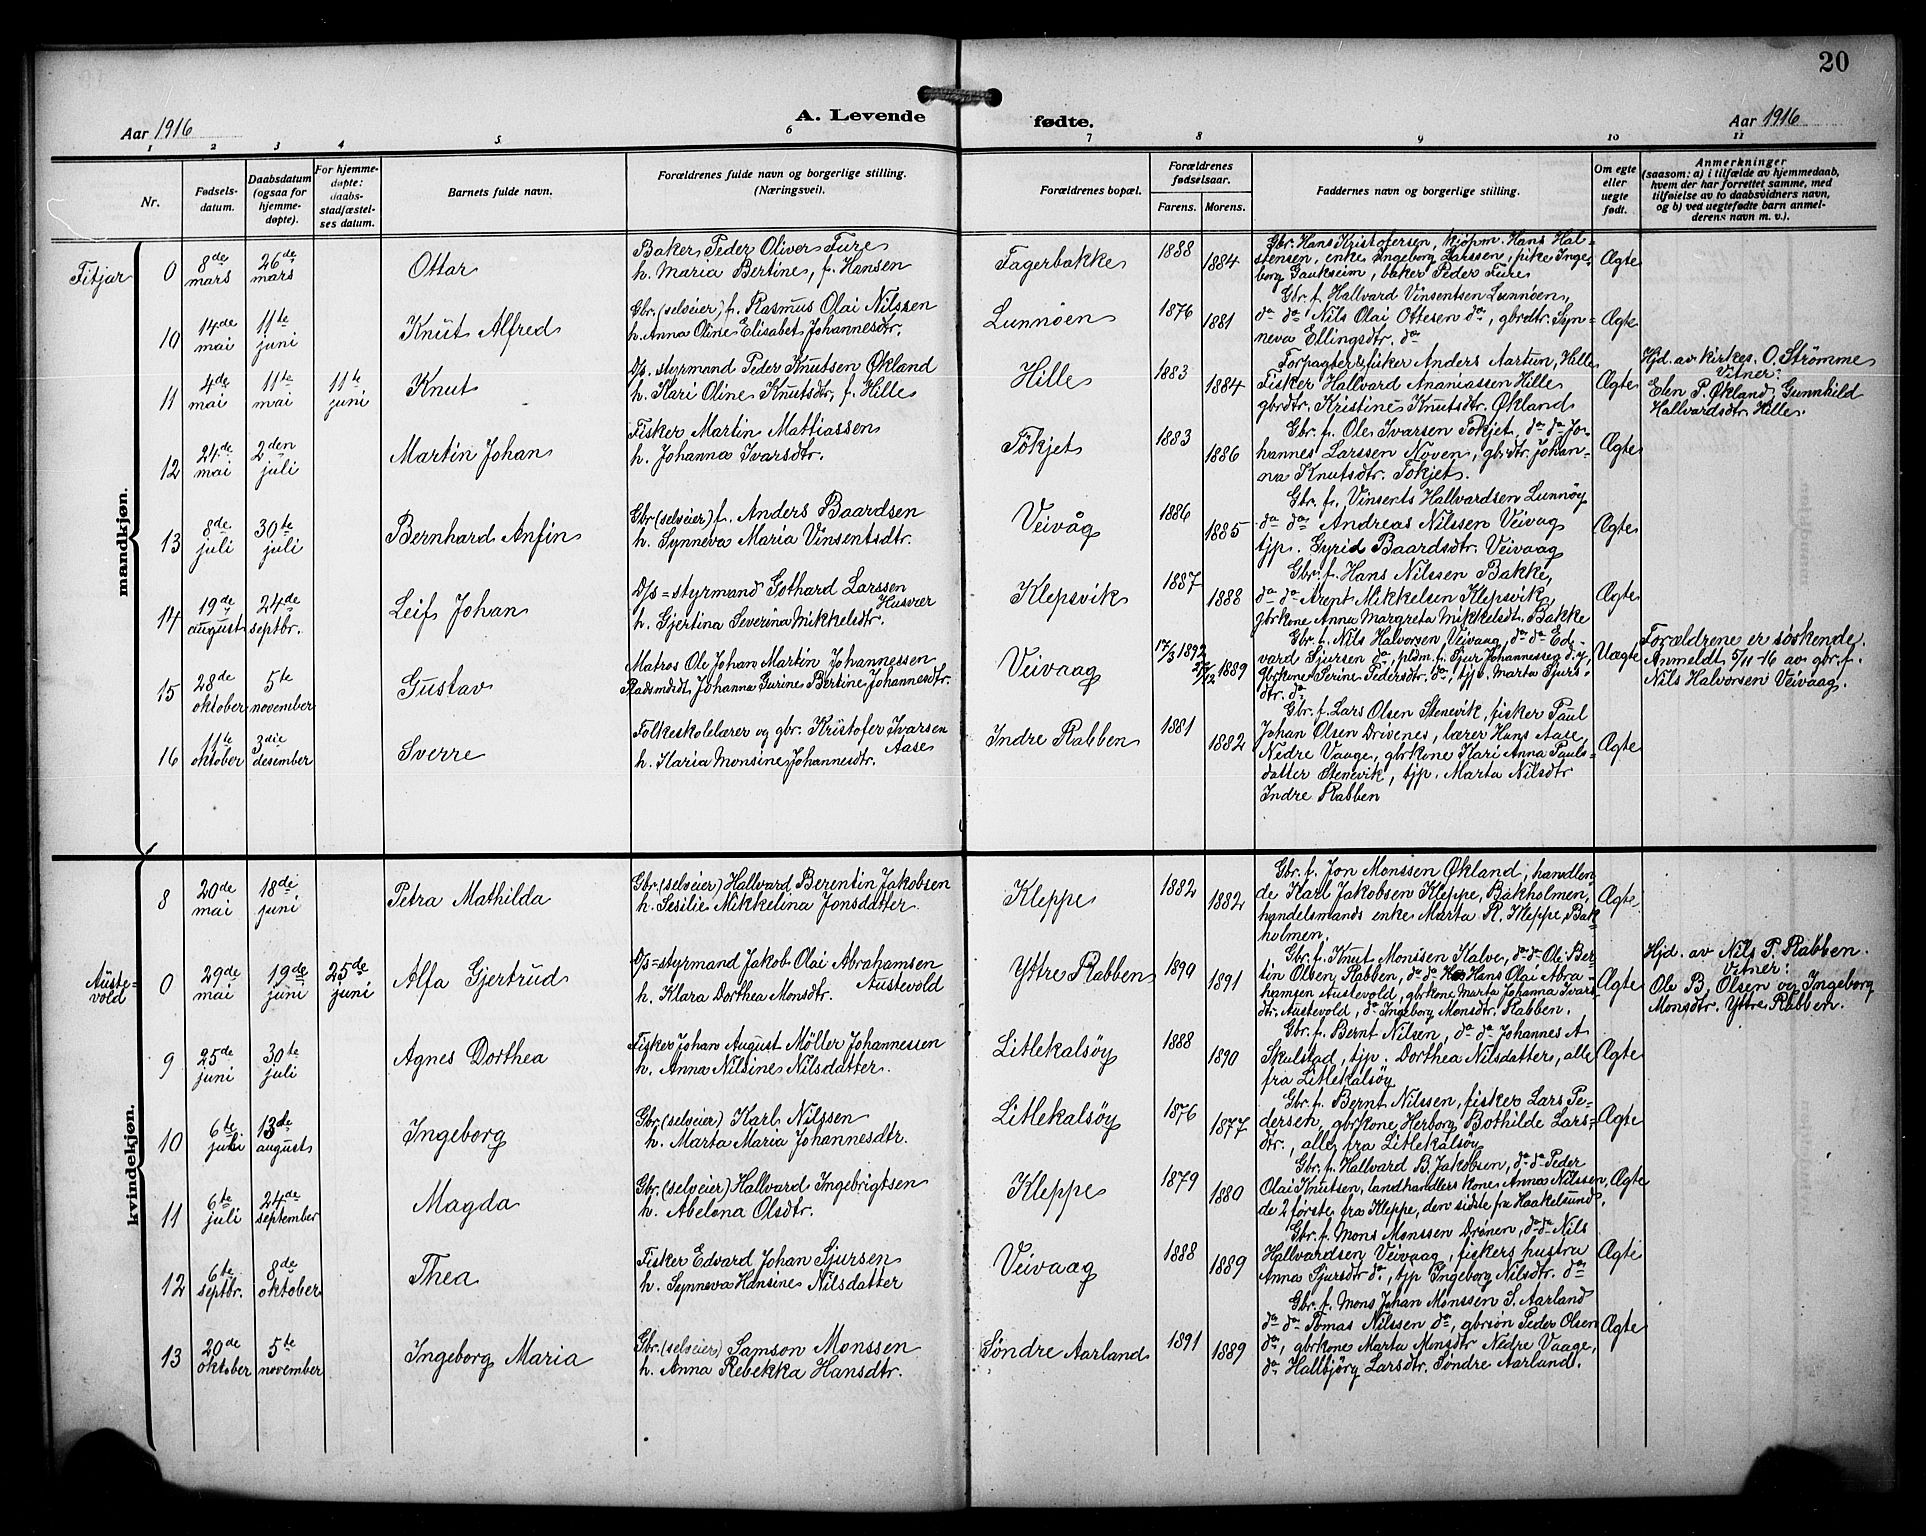 20
A. Levende fødte.
Aar 1916
Aar 1916
1 2 3 4 5 6 7 8 9 10 11
Nr.
Fødsels-
datum.
Daabsdatum
(ogsaa for
hjemme-
døpte).
For hjemme-
døpte:
daabs-
stadfæstel-
ses datum.
Barnets fulde navn.
Forældrenes fulde navn og borgerlige stilling.
(Næringsvei).
Forældrenes bopæl.
Forældrenes
fødselsaar.
Farens. Morens.
Faddernes navn og borgerlige stilling.
Om egte
eller
uegte
født.
Anmerkninger
(saasom: a) i tilfælde av hjemmedaab,
hvem der har forrettet samme, med
tilføielse av to daabsvidners navn,
og b) ved uegtefødte barn anmel-
derens navn m. v.).
mandkjøn.
Fitjar
0
8de
mars
26de
mars
Ottar
Baker Peder Oliver Fure
h. Maria Bertine, f. Hansen
Fagerbakke
1888
1884
Gbr. Hans Kristofersen, kjøpm. Hans Hal-
stensen, enke Ingeborg Larssen, pike Inge-
borg Gaukseim, baker Peder Fure
Ægte
10
14de
mai
11te
juni
Knut Alfred
Gbr. (selveier) f. Rasmus Olai Nilssen
h. Anna Oline Elisabet Johannesdtr.
Lunnöen
1876
1881
Gbr. f. Hallvard Vinsentsen Lunnöen,
da da Nils Olai Ottesen da, gbrdtr. Syn-
neva Ellingsdtr. da
Ægte
11
4de
mai
11te
mai
11te
juni
Knut
D/s. styrmand Peder Knutsen Økland
h. Kari Oline Knutsdtr, f. Hille
Hille
1883
1884
Forpagter & fisker Anders Aartun, Hille
Fisker Hallvard Ananiassen Hille
gbrdtr. Kristine Knutsdtr. Økland
Ægte
Hjd. av kirkes. O. Strömme
Vitner:
Elen P. Økland, Gunnhild
Hallvardsdtr. Hille.
12
24de
mai
2den
juli
Martin Johan
Fisker Martin Mattiassen
h. Johanna Ivarsdtr.
Tökjet
1883
1886
Gbr. f. Ole Ivarsen Tökjet, da da Jo-
hannes Larssen Noven, gbrdtr. Johan-
na Knutsdtr. Tökjet.
Ægte
13
8de
juli
30te
juli
Bernhard Anfin
Gbr (selveier) f. Anders Baardsen
h. Synneva Maria Vinsentsdtr
Veivåg
1886
1885
Gbr. f. Vinsents Hallvardsen Lunnöy
da da Andreas Nilssen Veivag
tjp. Gyrid Baardsdtr. Veivaag
Ægte
14
19de
august
24de
septbr.
Leif Johan
D/s=styrmand Gothard Larssen
Husvær
h. Gjertina Severina Mikkelsdtr.
Klepsvik
1887
1888
Gbr. f. Hans Nilssen Bakke,
da da Arent Mikkelsen Klepsvik,
gbrkone Anna Margreta Mikkelsdt. Bakke
Ægte
15
28de
oktober
5te
november
Gustav
Matros Ole Johan Martin Johannessen
Johanna Gurine Bertine Johannesdtr.
Veivaag
17/3 1892
1889
Gbr. f. Nils Halvorsen, Veivaag, da da Ed-
vard Sjursen da, pldm. f. Sjur Johannessen d.y,
Gbrkone Serine Pedersdtr. da, tjp. Marta Sjurs-
dtr. da
Uægte
Forældrene er söskende.
Anmeldt 5/11-16 av gbr. f.
Nils Halvorsen Veivaag.
16
11te
oktober
3die
desember
Sverre
Folkeskolelærer og gbr. Kristofer Ivarsen
Aase
h. Karia Monsine Johannesdtr.
Indre Rabben
1881
1882
Gbr. f. Lars Olsen Stenevik, fisker Paul
Johan Olsen Drivenes, lærer Hans Aase,
Nedre Vaage, gbrkone Kari Anna Pauls-
datter Stenevik, tjp. Marta Nilsdtr
Indre Rabben
Ægte
kvindekjøn.
8
20de
mai
18de
juni
Petra Mathilda
Gbr. (selveier) Hallvard Berentin Jakobsen
h. Sesilie Mikkelina Jonsdatter.
Kleppe
1882
1882
Gbr. f. Jon Monssen Økland, handlen
de Karl Jakobsen Kleppe, Bakholmen,
handelsmands enke Marta R. Kleppe, Bak
holmen.
Ægte.
Auste-
vold
0
29de
mai
19de
juni
25de
juni
Alfa Gjertrud
D/s=styrmand Jakob Olai Abrahamsen
Austevold
h. Klara Dorthea Monsdtr.
Yttre Rabben
1890
1891
Gbr. f. Knut Monssen Kalve, da da Ole Ber-
tin Olsen Rabben, da da Hans Olai Abra-
hamsen Austevold, gbrkone Marta Johanna Ivars
dtr. Austevold, da Ingeborg Monsdtr. Rabben.
Ægte
Hjd. av Nils P. Rabben.
Vitner:
Ole B. Olsen og Ingeborg
Monsdtr. Yttre Rabben.
9
25de
juni
30te
juli
Agnes Dorthea
Fisker Johan August Möller Johannessen
h. Anna Nilsine Nilsdatter.
Litlekalsöy
1888
1890
Gbr. f. Bernt Nilsen, da da Johannes A
Skulstad, tjp. Dorthea Nilsdatter, alle
fra Litlekalsöy
Ægte
10
6te
juli
13de
august
Ingeborg
Gbr. (selveier) Karl Nilssen
h. Marta Maria Johannesdtr.
Litlekalsöy
1876
1877
Gbr. f. Bernt Nilssen, fisker Lars Pe-
dersen, gbrkone Herborg Bothilde Lars-
dtr., alle fra Litlekalsöy
Ægte
11
6te
juli
24de
september
Magda
Gbr. (selveier) Hallvard Ingebrigtsen
h. Abelona Olsdtr.
Kleppe
1879
1880
Gbr. f. Hallvard B. Jakobsen, da da Peder
Olai Knutsen, landhandlers kone Anna Nilssen,
de 2 förste fra Kleppe, den sidste fra Haakelsund.
Ægte
12
6te
septbr.
8de
oktober
Thea
Fisker Edvard Johan Sjursen
h. Synneva Hansine Nilsdatter
Veivaag
1888
1889
Gbr. f. Mons Monssen Drönen, da da Nils
Hallvardsen Veivaag, fiskers hustru
Anna Sjursdtr da, tjp Ingeborg Nilsdtr. da
Ægte
13
20de
oktober
5te
november
Ingeborg Maria
Gbr. (selveier) Samson Monssen
h. Anna Rebekka Hansdtr.
Søndre Aarland
1891
1889
Gbr. f. Mons Johan Monssen S. Aarland
da da Tomas Nilssen da, gbrsön Peder Olsen
da, gbrkone Marta Monsdtr Nedre Vaage,
da Hallbjörg Larsdtr. Søndre Aarland.
Ægte